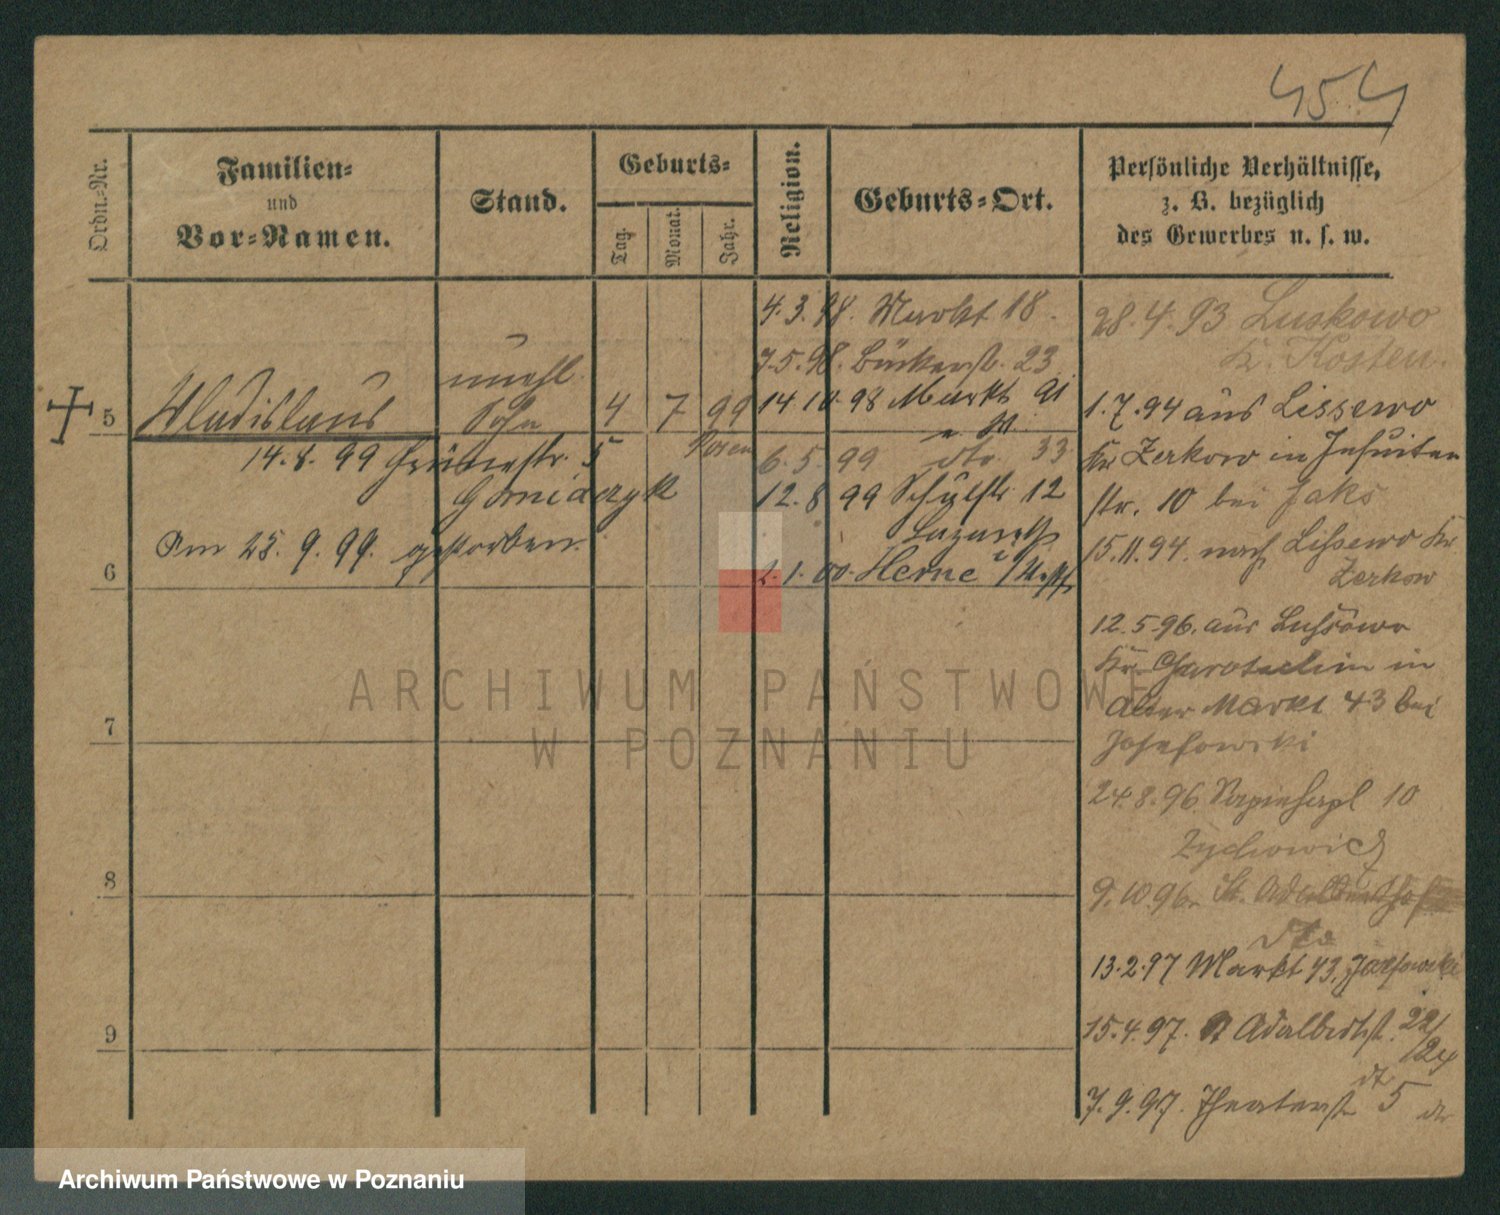 454
Ordn.-Nr.
Familien-
und
Vor-Namen.
Stand.
Geburts-
Tag.
Monat.
Jahr.
Religion.
Geburts-Ort.
Persönliche Verhältnisse,
z. B. bezüglich
des Gewerbes u. s. w.
4.3.98. Markt 18.
7.5.98. Bäckerstr. 23
14.10.98 Markt 91
5 Wladislaus unehl. Sohn 4 7 99
Posen
6.5.99 dto 33
14.8.99 Grünestr. 5
12.8 99 Schulstr. 12
Am 25.9.99. gestorben.
6
2.1.00. Herne i/Westf
7
8
9
28.4.93 Luskowo
Kr. Kosten.
1.7.94 aus Lissewo
Kr Zerkow in Jesuiten
str. 10 bei Jaks
15.11.94. nach Lissewo Kr.
Zerkow
12.5.96. aus
Kr. in
Alter Markt 43 bei
Josefowski
24.8.96. Sapiehapl 10
Zychowicz
9.10.96. St.
dto
13.2.97 Markt 43,
15.4.97. St Adalbertst. 22/
/24
7.9.97. Theaterstr 5
ARCHIWUM PAŃSTWOWE
W POZNANIU
Archiwum Państwowe w Poznaniu